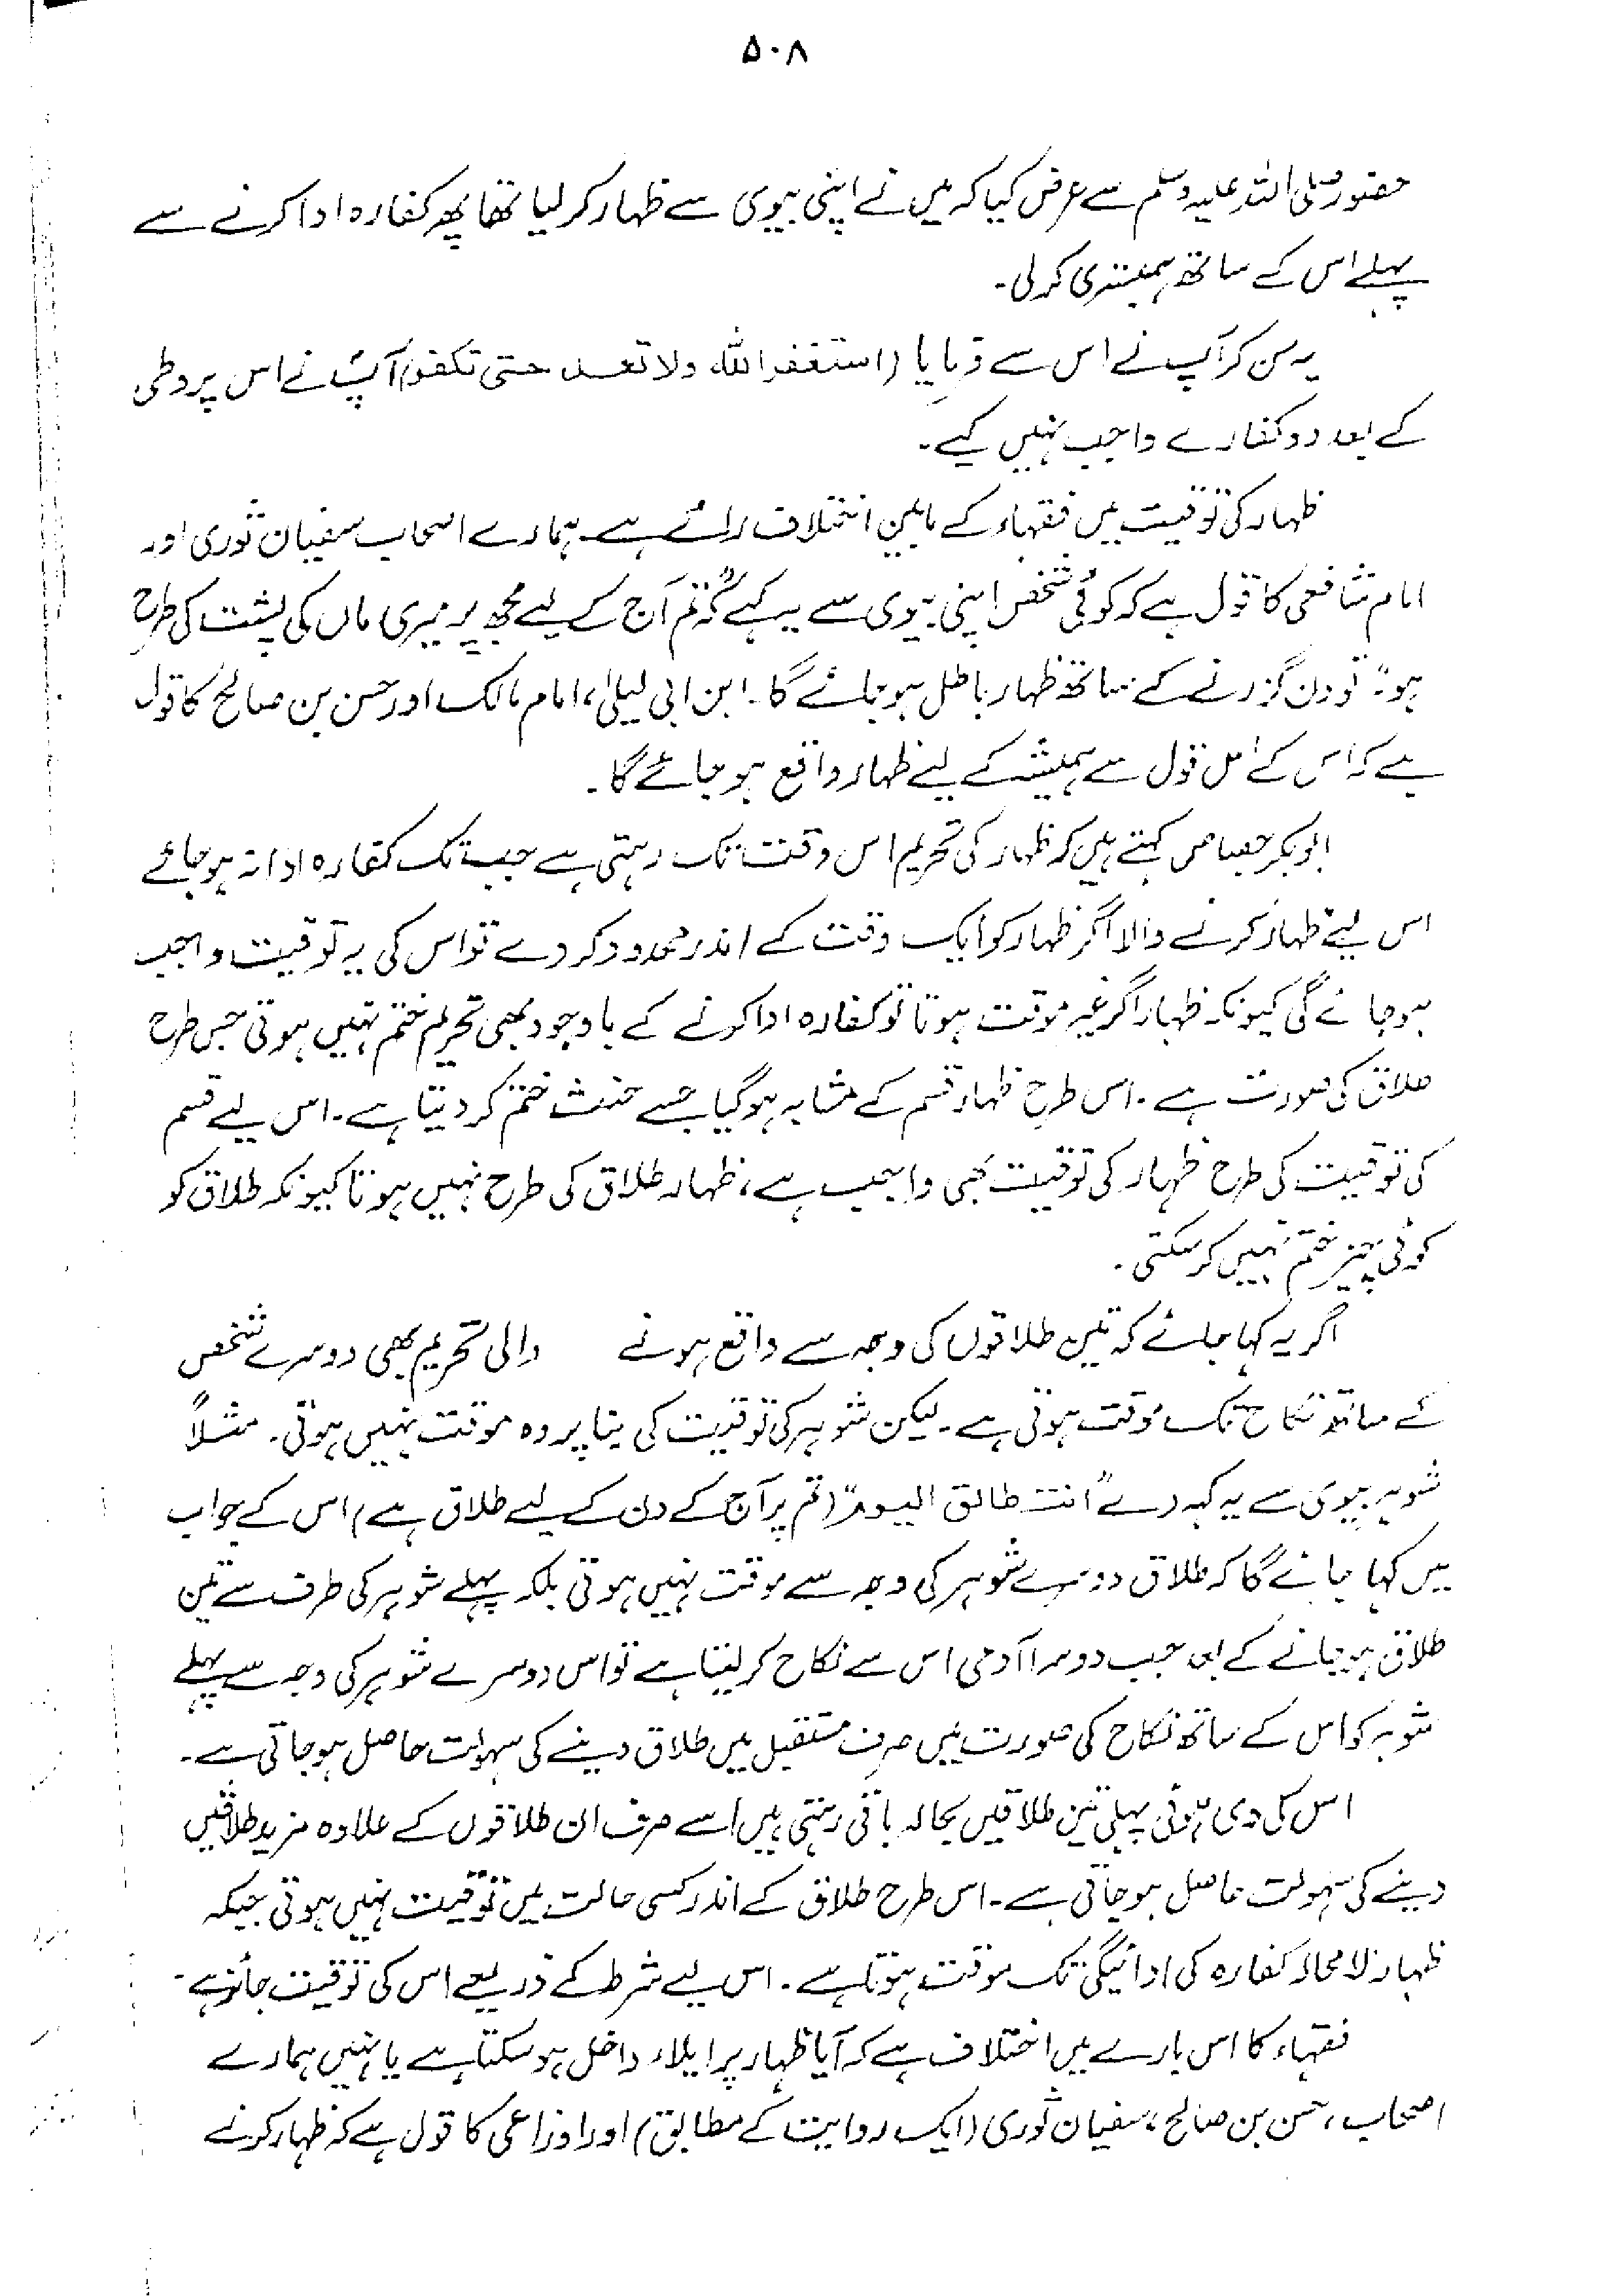 ۵۰۸
حضور صلی اللہ علیہ وسلم سے عرض کیا کہ میں نے اپنی بیوی سے ظہار کر لیا تھا پھر کفارہ ادا کرنے سے
پہلے اس کے ساتھ ہمبستری کر لی۔
یہ سن کر آپ نے اس سے فرمایا (استغفر اللہ ولا تعد حتی تکفر) آپؐ نے اس پر وطی
کے بعد دو کفارے واجب نہیں کیے۔
ظہار کی توقیت میں فقہاء کے مابین اختلاف رائے ہے۔ ہمارے اصحاب سفیان ثوری اور
امام شافعی کا قول ہے کہ کوئی شخص اپنی بیوی سے یہ کہے کہ "تم آج کے لیے مجھ پر میری ماں کی پشت کی طرح
ہو" تو دن گزرنے کے ساتھ ظہار باطل ہو جائے گا۔ ابن ابی لیلیٰ، امام مالک اور حسن بن صالح کا قول
ہے کہ اس کے اس قول سے ہمیشہ کے لیے ظہار واقع ہو جائے گا۔
ابوبکر جصاص کہتے ہیں کہ ظہار کی تحریم اس وقت تک رہتی ہے جب تک کفارہ ادا نہ ہو جائے
اس لیے ظہار کرنے والا اگر ظہار کو ایک وقت کے اندر محدود کر دے تو اس کی یہ توقیت واجب
ہو جائے گی کیونکہ ظہار اگر غیر موقت ہوتا تو کفارہ ادا کرنے کے باوجود بھی تحریم ختم نہیں ہوتی جس طرح
طلاق کی صورت ہے۔ اس طرح ظہار قسم کے مشابہ ہو گیا جسے حنث ختم کر دیتا ہے۔ اس لیے قسم
کی توقیت کی طرح ظہار کی توقیت بھی واجب ہے، ظہار طلاق کی طرح نہیں ہوتا کیونکہ طلاق کو
کوئی چیز ختم نہیں کر سکتی۔
اگر یہ کہا جائے کہ تین طلاقوں کی وجہ سے واقع ہونے والی تحریم بھی دوسرے شخص
کے ساتھ نکاح تک موقت ہوتی ہے۔ لیکن شوہر کی توقیت کی بنا پر وہ موقت نہیں ہوتی۔ مثلاً
شوہر بیوی سے یہ کہہ دے "انت طالق الیوم" (تم پر آج کے دن کے لیے طلاق ہے) اس کے جواب
میں کہا جائے گا کہ طلاق دوسرے شوہر کی وجہ سے موقت نہیں ہوتی بلکہ پہلے شوہر کی طرف سے تین
طلاق ہو جانے کے بعد جب دوسرا آدمی اس سے نکاح کر لیتا ہے تو اس دوسرے شوہر کی وجہ سے پہلے
شوہر کو اس کے ساتھ نکاح کی صورت میں صرف مستقبل میں طلاق دینے کی سہولت حاصل ہو جاتی ہے۔
اس کی دی ہوئی پہلی تین طلاقیں بحالہ باقی رہتی ہیں اسے صرف ان طلاقوں کے علاوہ مزید طلاقیں
دینے کی سہولت حاصل ہو جاتی ہے۔ اس طرح طلاق کے اندر کسی حالت میں توقیت نہیں ہوتی جبکہ
ظہار لا محالہ کفارہ کی ادائیگی تک موقت ہوتا ہے۔ اس لیے شرط کے ذریعے اس کی توقیت جائز ہے۔
فقہاء کا اس بارے میں اختلاف ہے کہ آیا ظہار پر ایلاء داخل ہو سکتا ہے یا نہیں ہمارے
اصحاب، حسن بن صالح، سفیان ثوری (ایک روایت کے مطابق) اور اوزاعی کا قول ہے کہ ظہار کرنے